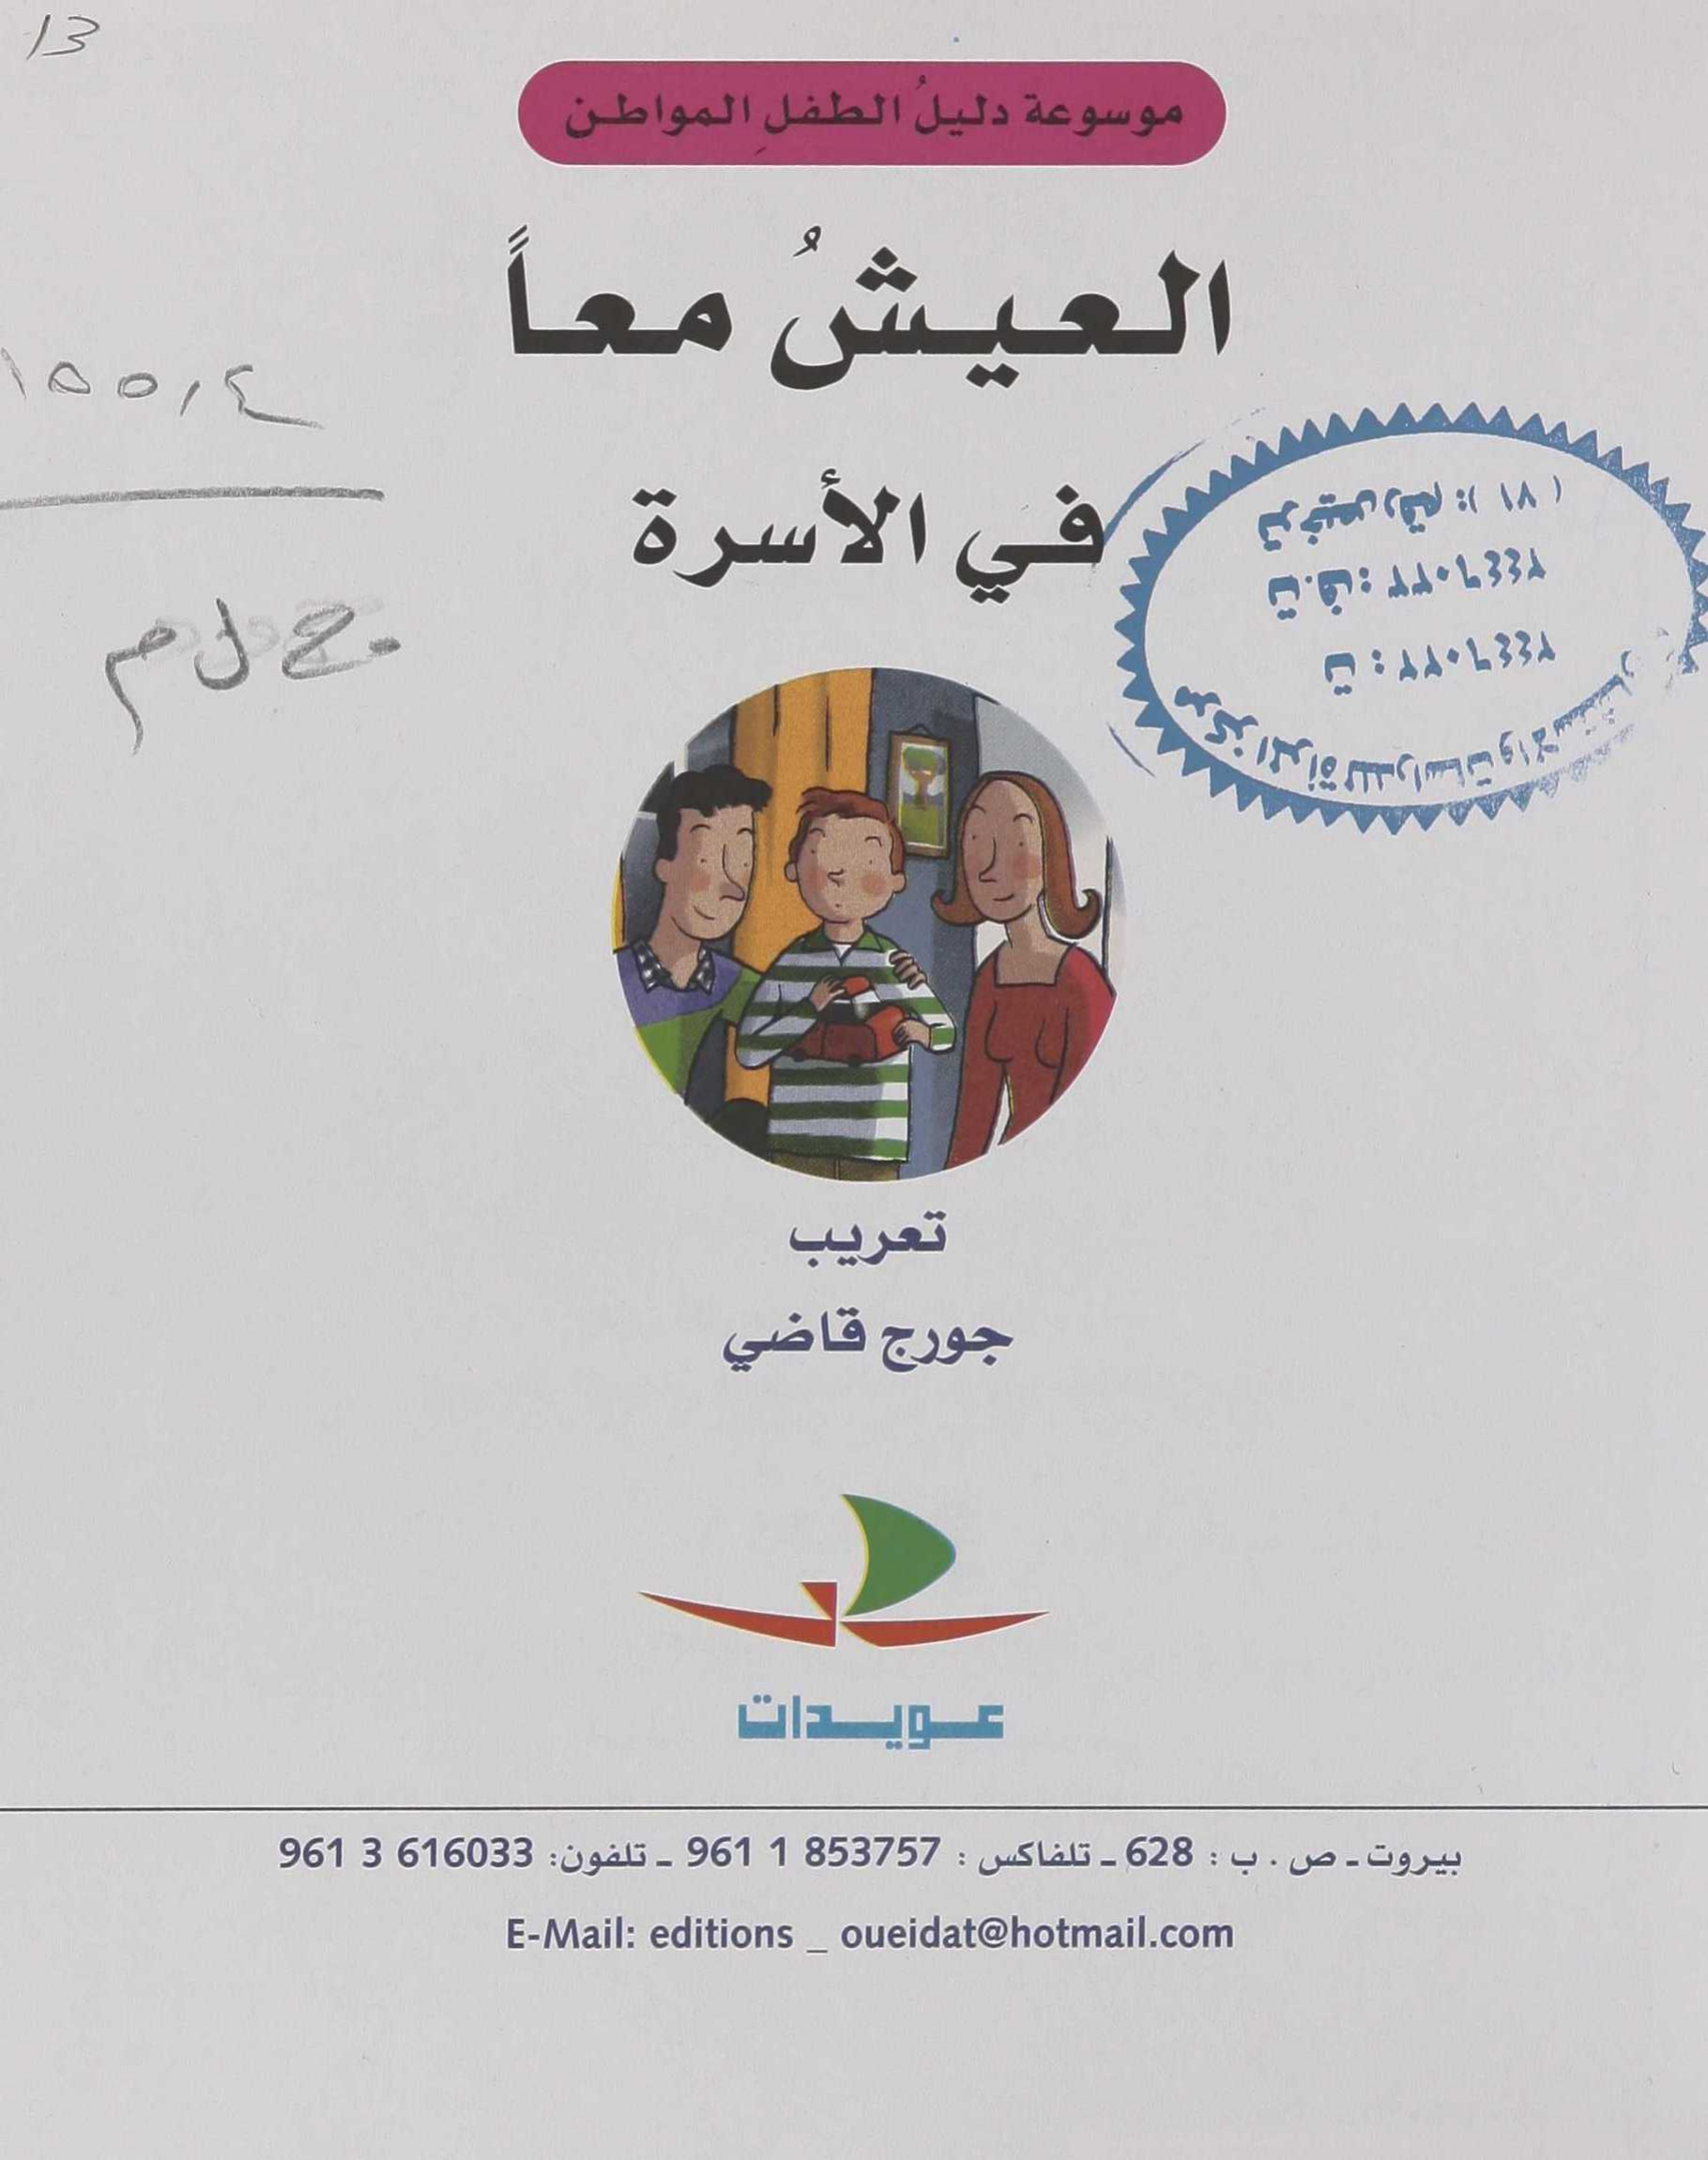 13
موسوعة دليلُ الطفلِ المواطن
العيشُ معاً
١٥٥،٤
في الأسرة
ترخيص رقم : ( ٧١ )
ل م
تعريب
جورج قاضي
عويدات
بيروت ـ ص . ب : 628 ـ تلفاكس : 853757 1 961 ـ تلفون: 616033 3 961
E-Mail: editions _ oueidat@hotmail.com